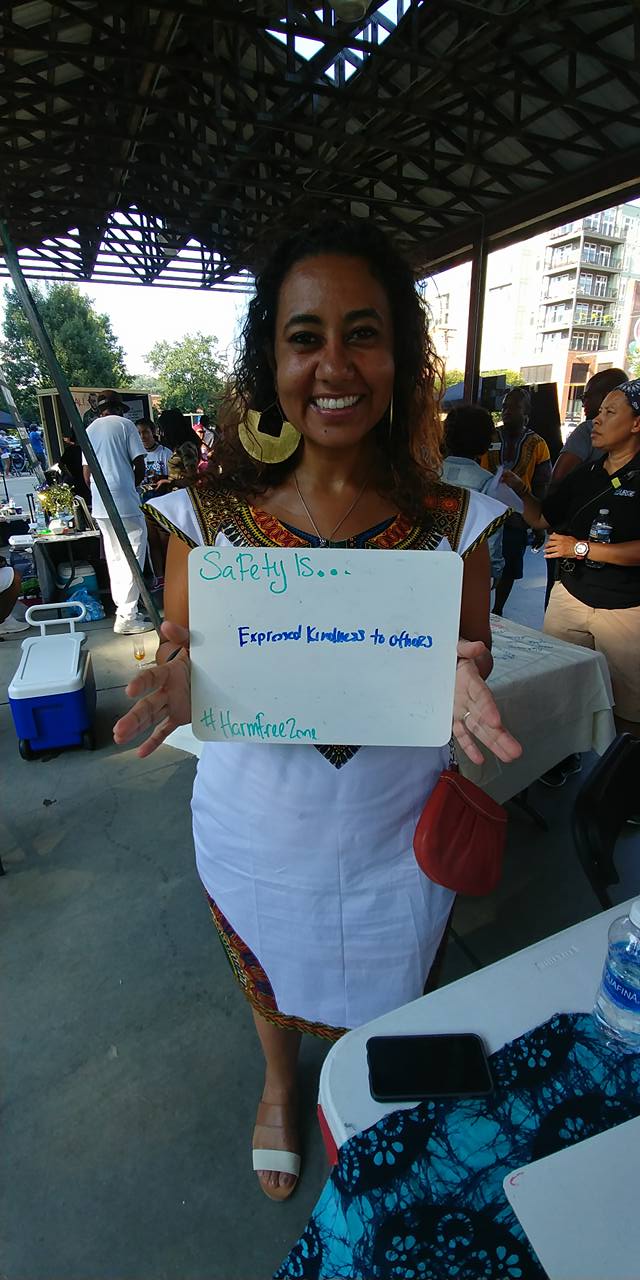 Safety Is...
Expressed Kindness to others
#HarmFreeZone
AQUAFINA